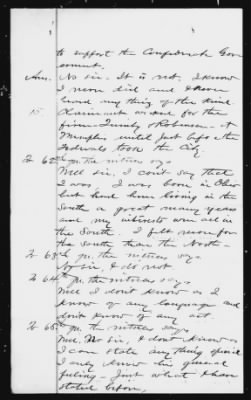 to support the Confederate Gov
ernment.
Ans. No sir. It is not. I know
I never did and I never
heard any thing of the kind.
Claimant worked for the
firm Tunly & Robinson at
Memphis until just before the
Federals took the City.
To 62d qu. the witness says
Well sir, I can't say that
I was. I was born in Ohio
but had been living in the
South a great many years
and my interests were all in
the South. I felt more for
the South than the North.
To 63d qu. the witness says
No sir, I do not
To 64th qu. the witness says
Well I don't know as I
know of any language and
don't know of any act.
To 65th qu. the witness says
Well No Sir, I don't know as
I can state any thing special
I only knew his general
feeling - Just what I have
stated before.